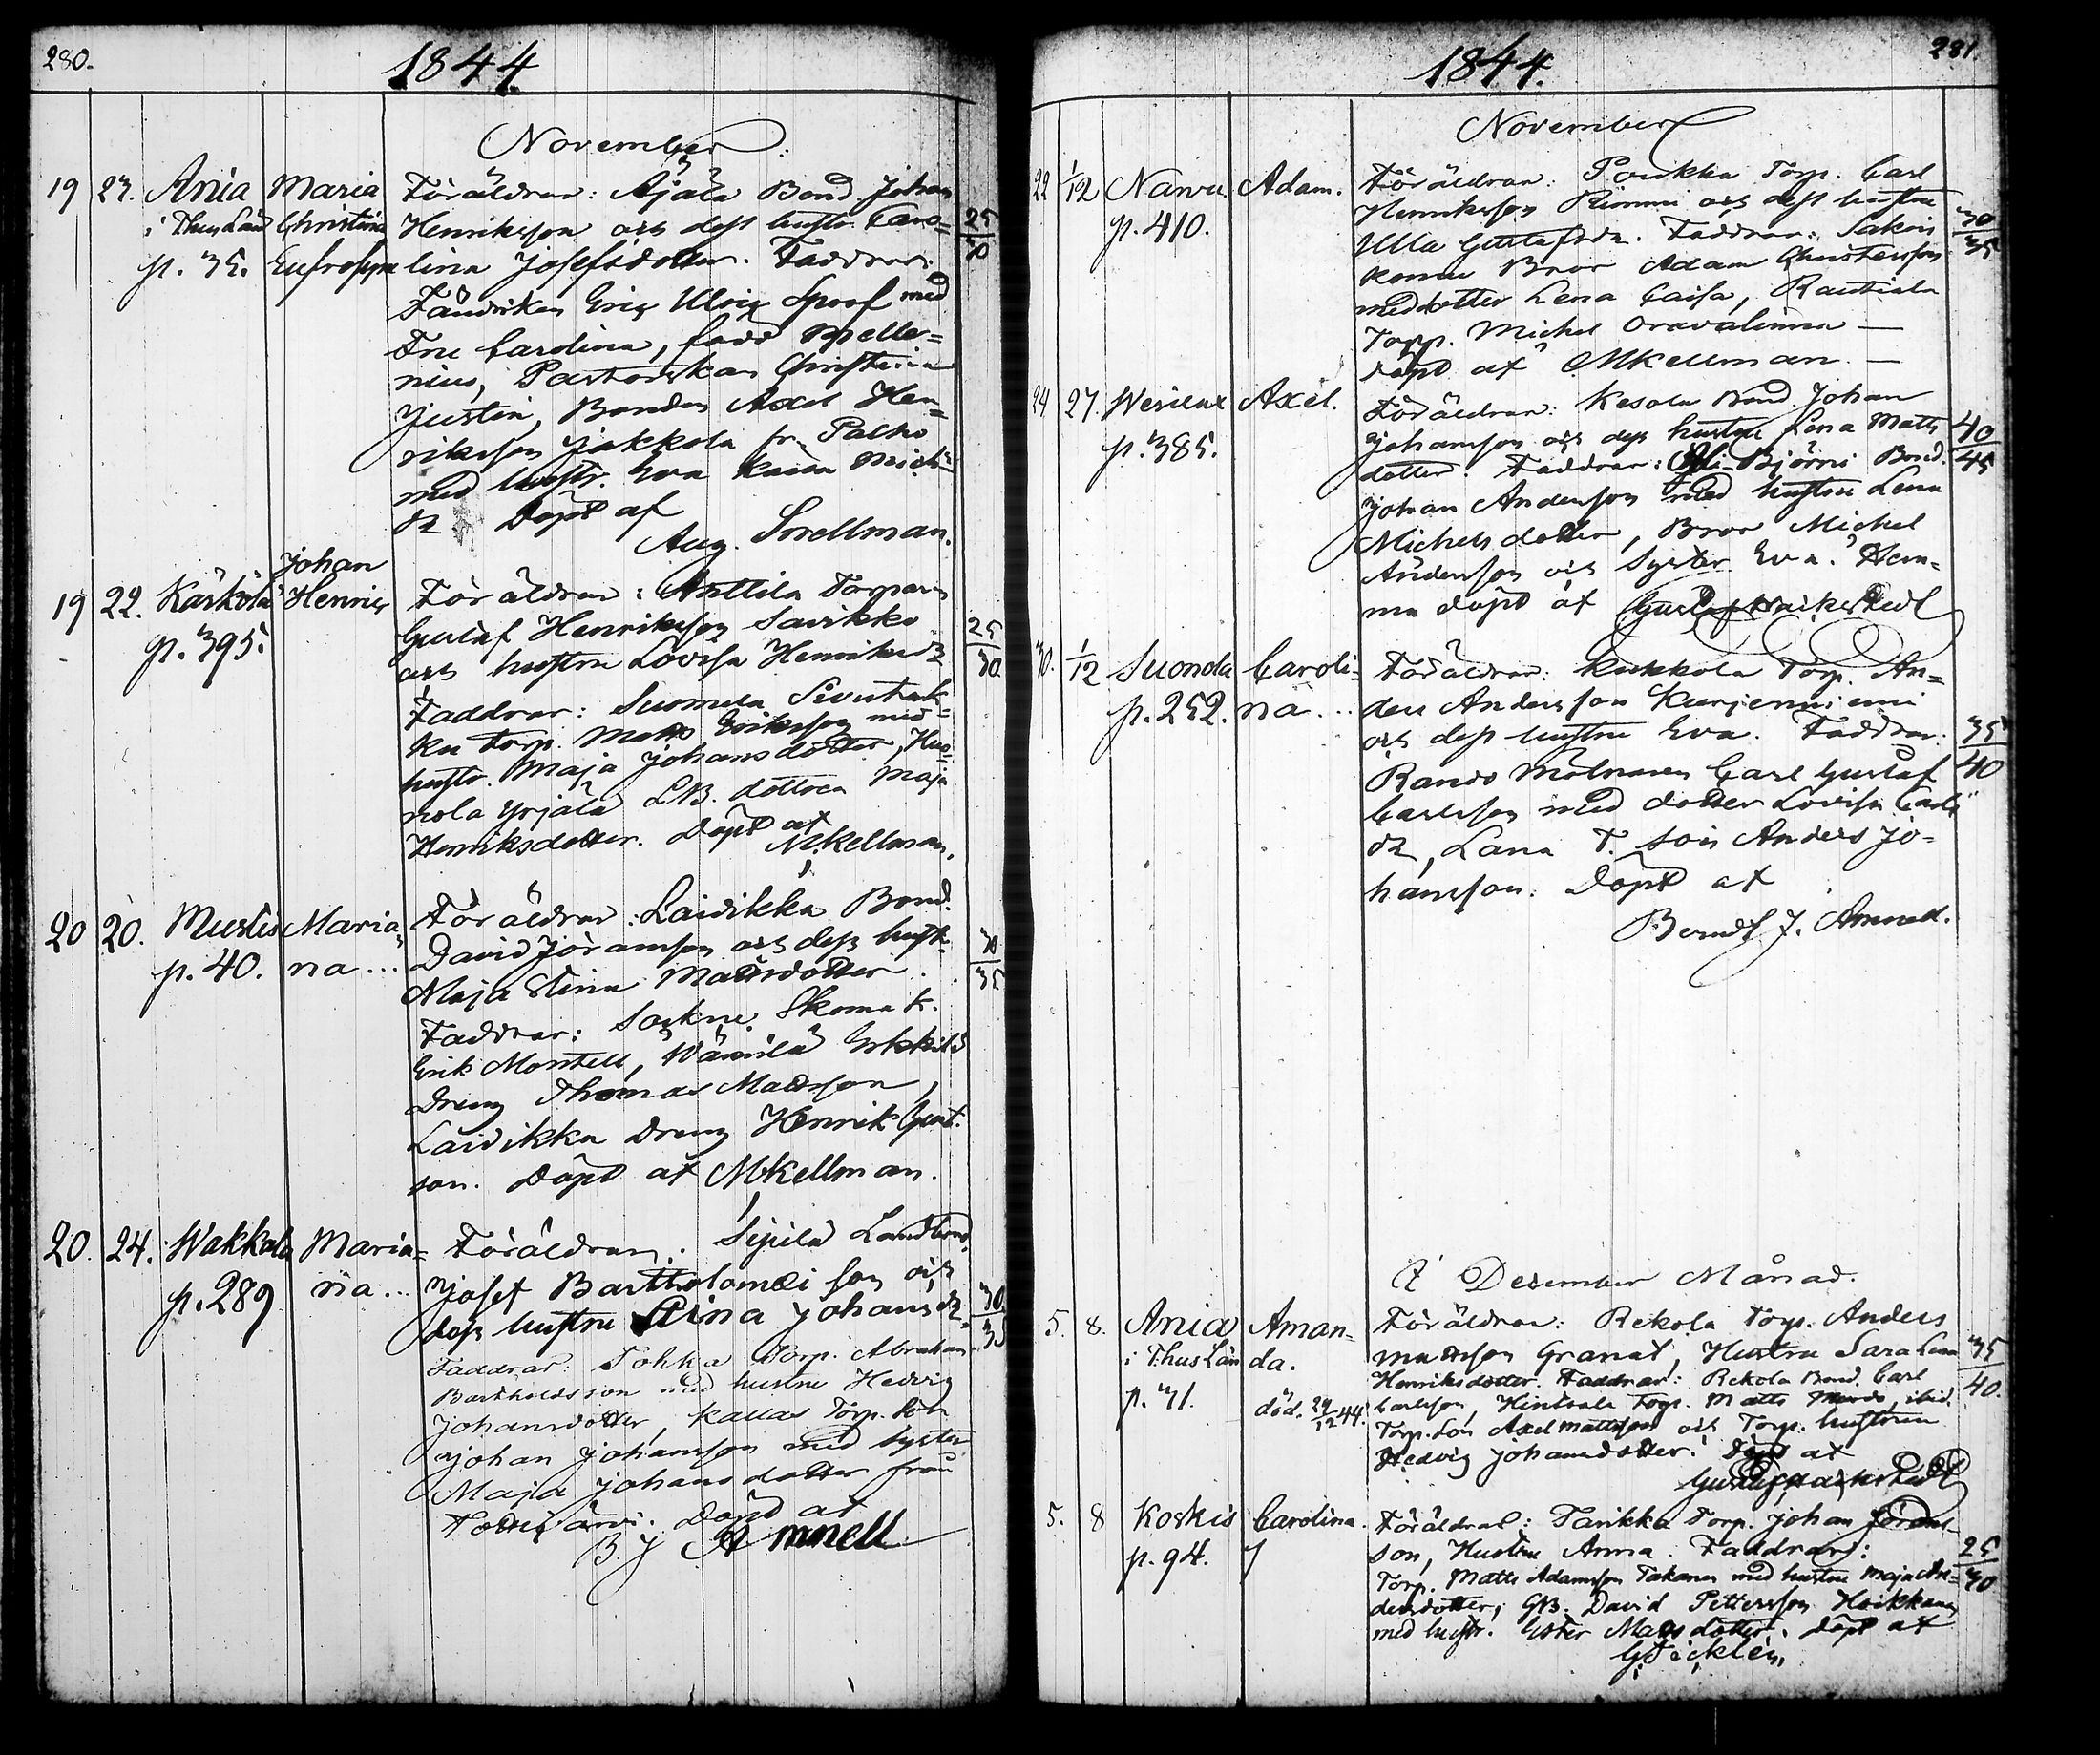 280.
1844.
November.
19 27. Ania Maria Föräldrar: Äjälä Bond Johan
i Thus Län Christina Henriksson och dess hustr. Caro= 25
p. 35. Eufrosyne lina Josefsdotter. Faddrar: 30
Fändriken Eriq Ulriq Spoof med
Fru Carolina, född Melle=
nius, Pastorskan Christina
Justin, Bonden Axel Hen=
riksson Jakkola fr. Palho
med hustr. Eva Kaisa Mich
dr Döpt af
Aug. Snellman.
Johan
19 22. Kärkölä Henric Föräldrar: Anttila Torparen
p. 395. Gustaf Henriksson Savikko 25
och hustru Lovisa Henriksdr 30
Faddrar: Suomela
ku Torp. Matts Eriksson med
hustr. Maja Johansdotter,
nola Yrjälä LB. dottren Maja
Henriksdotter. Döpt af
M. Kellman.
20 20. Mustis Maria= Föräldrar: Laidikka Bond.
p. 40. na... David Jöransson och dess hust. 30
Maja Stina Mattsdotter. 35
Faddrar: Sockne Skomak.
Erik Montell, Wännilä Erkkilä
Dreng Thomas Mattsson,
Laidikka Dreng Henrik Gust.
son. Döpt af M Kellman.
20. 24. Wakkola Maria= Föräldrar: Sipilä Landbond.
p. 289 na... Josef Bartholomæi son och
dess hustru Stina Johansdr. 30
35
Faddrar: Torp. Abraham
Bartholdsson med hustru Hedvig
Johansdotter, Kallas Torp. Son
Johan Johansson med Syster
Maja Johansdotter från
Döpt af
B. J Amnell
281.
1844.
November
22 1/12 Nawu. Adam. Föräldrar: Torp. Carl
p. 410. Henriksson Rimmi och dess hustru 30
Ulla Gustafsdr. Faddrar: Sakari 35
Bror Adam Christersson
med dotter Lena Caisa, Rautiala
Torp. Michel Oravalinna —
Döpt af M Kellman. —
24 27. Axel. Föräldrar: Kesola Bond. Johan
p. 385. Johansson och dess hustru Lena Matts 40
dotter. Faddrar: Björni Bond. 45
Johan Andersson med hustru Lena
Michelsdotter, Bror Michel
Andersson och Syster Eva. Hem=
ma döpt af Gustaf
30. 1/12 Suonola Caroli= Föräldrar: Kukkola Torp. An=
p. 252. na... ders Andersson Kurjenniemi
och dess hustru Eva. Faddrar: 35
Rando Mölnaren Carl Gustaf 40
Carlsson med dotter Lovisa Carls
dr, Lana T. Son Anders Jo=
hansson. Döpt af
Berndt J. Amnell.
I December Månad.
5. 8. Ania Aman= Föräldrar: Rekola Torp. Anders
i Thus Län da. Mattsson Granat, Hustru Sara Lena 35
p. 31. död. 29/12 44. Henriksdotter. Faddrar: Rekola Bond. Carl 40.
Carlsson, Hintsala Torp. Matts ibid.
Torp. Son Axel Mattsson och Torp. hustrun
Hedvig Johansdotter. Döpt af
Gustaf
5. 8 Koskis Carolina. Föräldrar: Tarikka Torp. Johan Jörans=
p. 94. son, Hustru Anna. Faddrar: 25
Torp. Matts Adamsson Takanen med hustru Maja An= 30
dersdotter, GB. David Pettersson Hoikkanen
med hustr. Ester Mattsdotter. Döpt af
G.